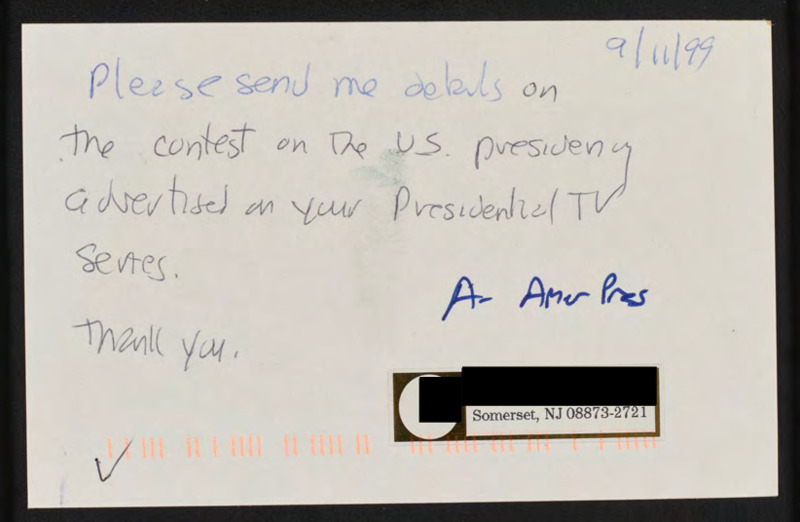 9/11/99
Please send me details on
the contest on the U.S. presidency
advertised on your Presidential TV
series.
A- Amer Pres
Thank you.
Somerset, NJ 08873-2721